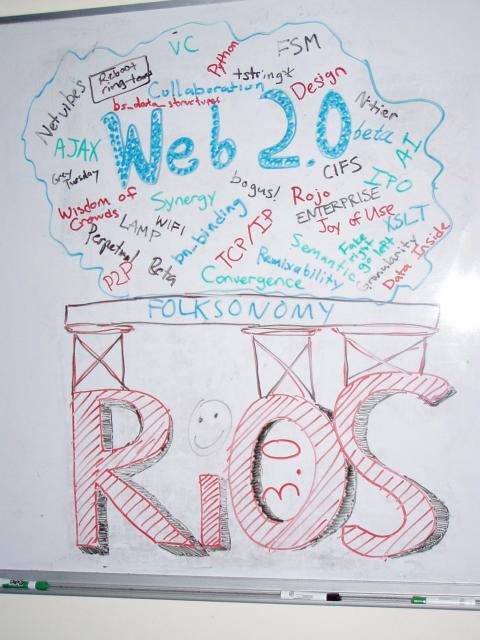 VC
Python
FSM
Reboot
ring-toads
Netvibes
Collaboration
tstring*
Design
bs_data_structures
N-tier
Web 2.0
beta
AJAX
AI
Grey
Tuesday
CIFS
IPO
bogus!
Wisdom of
Crowds
Synergy
Rojo
ENTERPRISE
Joy of Use
XSLT
LAMP
WIFI
bn_binding
TCP/IP
Perpetual
Beta
Semantic
Fake
right
go left
Granularity
Data Inside
Remixability
P2P
Convergence
FOLKSONOMY
RiOS
3.0